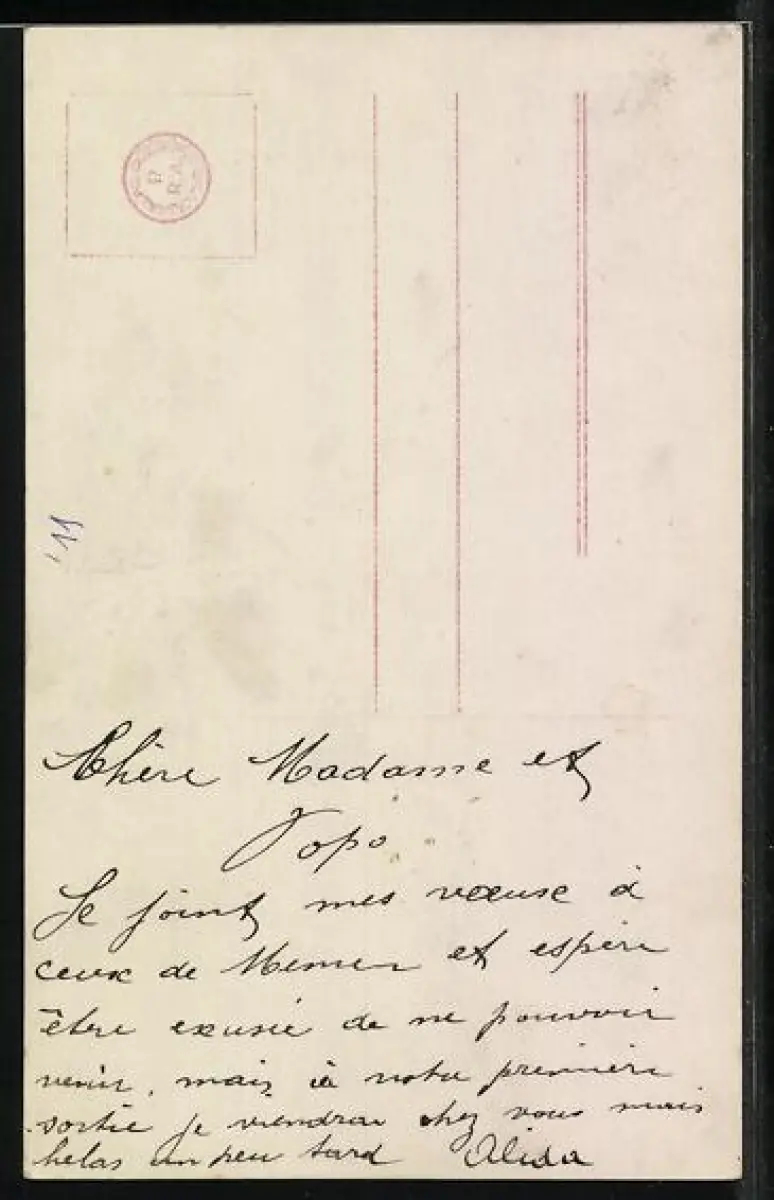 Chère Madame et
Popo
Je joint mes vœuse à
ceux de Memer et espère
être exusée de ne pouvoir
venir, mais à notre première
sortie je viendrai chez vous mais
helas un peu tard Alida
11